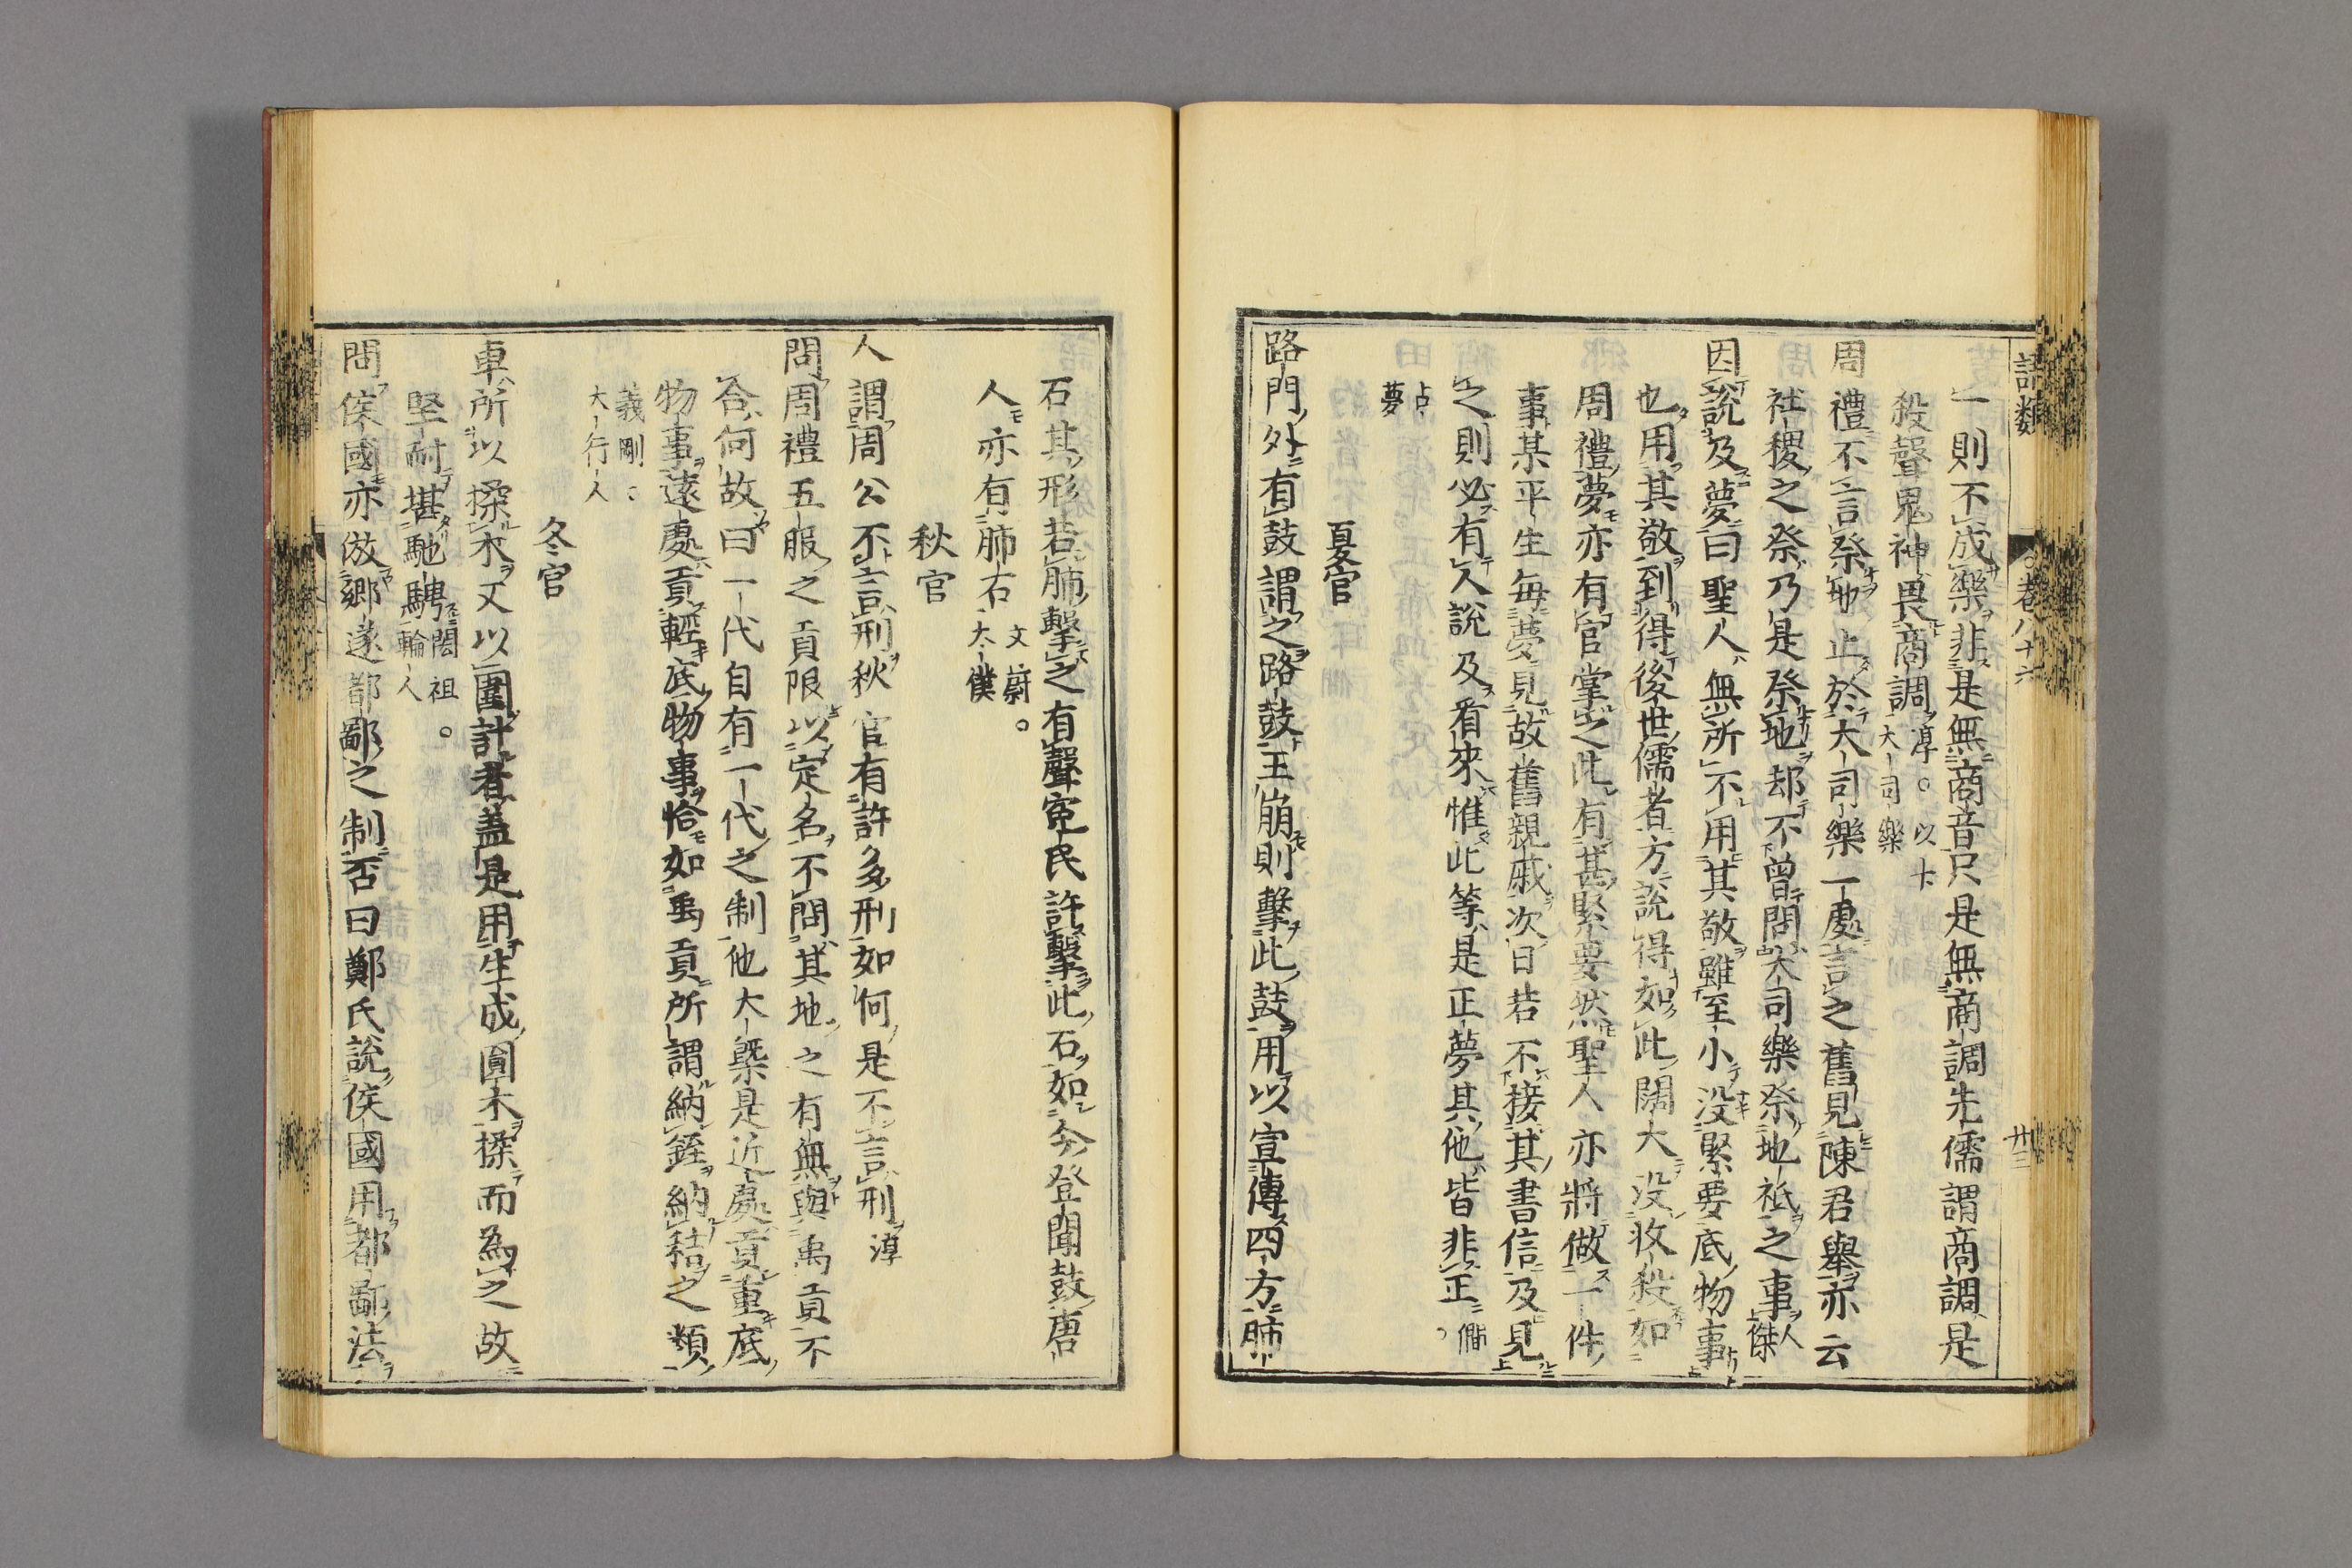 語類 卷八十六 廿三
一則不成樂非是無商音只是無商調先儒謂商調是
殺聲鬼神畏商調淳。以卞大司樂
周禮不言祭地止於大司樂一處言之舊見陳君舉亦云
社稷之祭乃是祭地却不曾問大司樂祭地祇之事人傑
因說及夢曰聖人無所不用其敬雖至小没緊要底物事
也用其敬到得後世儒者方說得如此闊大没收殺如
周禮夢亦有官掌之此有甚緊要然聖人亦將做一件
事某平生每夢見故舊親戚次日若不接其書信及見
之則必有人說及看來惟此等是正夢其他皆非正僩
占夢
夏官
路門外有鼓謂之路鼓王崩則擊此鼓用以宣傳四方肺
石其形若肺擊之有聲寃民許擊此石如今登聞鼓唐
人亦有肺石文蔚。太僕
秋官
人謂周公不言刑秋官有許多刑如何是不言刑淳
問周禮五服之貢限以定名不問其地之有無與禹貢不
合何故曰一代自有一代之制他大槩是近處貢重底
物事遠處貢輕底物事恰如禹貢所謂納銍納秸之類
義剛大行人
冬官
車所以揉木又以圍計者盖是用生成圓木揉而為之故
堅耐堪馳騁閎祖。輪人
問侯國亦倣鄉遂都鄙之制否曰鄭氏說侯國用都鄙法